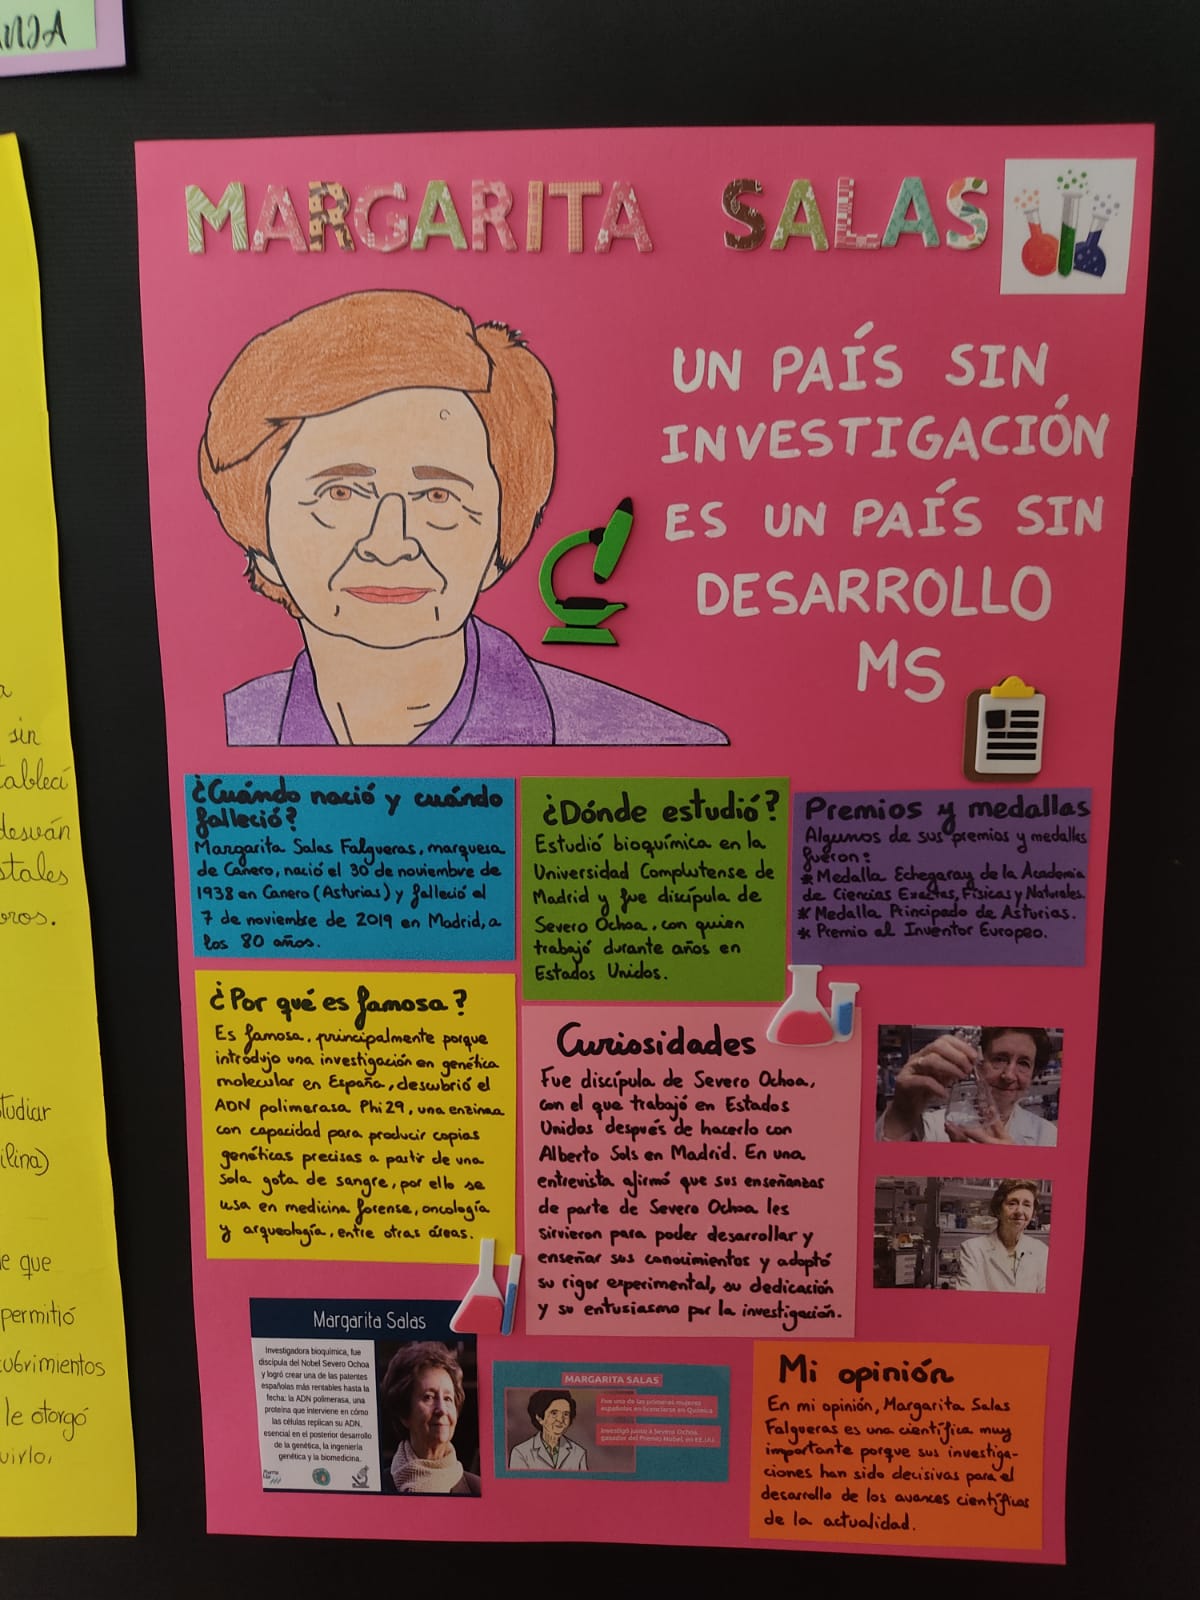 MARGARITA SALAS
UN PAÍS SIN
INVESTIGACIÓN
ES UN PAÍS SIN
DESARROLLO
MS
¿Cuándo nació y cuándo
falleció?
Margarita Salas Falgueras, marquesa
de Canero, nació el 30 de noviembre de
1938 en Canero (Asturias) y falleció el
7 de noviembre de 2019 en Madrid, a
los 80 años.
¿Dónde estudió?
Estudió bioquímica en la
Universidad Complutense de
Madrid y fue discípula de
Severo Ochoa, con quien
trabajó durante años en
Estados Unidos.
Premios y medallas
Algunos de sus premios y medallas
fueron:
* Medalla Echegaray de la Academia
de Ciencias Exactas, Físicas y Naturales.
* Medalla Principado de Asturias.
* Premio al Inventor Europeo.
¿Por qué es famosa?
Es famosa, principalmente porque
introdujo una investigación en genética
molecular en España, descubrió el
ADN polimerasa Phi29, una enzima
con capacidad para producir copias
genéticas precisas a partir de una
sola gota de sangre, por ello se
usa en medicina forense, oncología
y arqueología, entre otras áreas.
Curiosidades
Fue discípula de Severo Ochoa,
con el que trabajó en Estados
Unidos después de hacerlo con
Alberto Sols en Madrid. En una
entrevista afirmó que sus enseñanzas
de parte de Severo Ochoa les
sirvieron para poder desarrollar y
enseñar sus conocimientos y adoptó
su rigor experimental, su dedicación
y su entusiasmo por la investigación.
Margarita Salas
Investigadora bioquímica, fue
discípula del Nobel Severo Ochoa
y logró crear una de las patentes
españolas más rentables hasta la
fecha: la ADN polimerasa, una
proteína que interviene en cómo
las células replican su ADN,
esencial en el posterior desarrollo
de la genética, la ingeniería
genética y la biomedicina.
MARGARITA SALAS
Fue una de las primeras mujeres
españolas en licenciarse en Química
Investigó junto a Severo Ochoa,
ganador del Premio Nobel, en EE.UU.
Mi opinión
En mi opinión, Margarita Salas
Falgueras es una científica muy
importante porque sus investiga-
ciones han sido decisivas para el
desarrollo de los avances científicos
de la actualidad.
sin
desván
stales
tudiar
ilina)
e que
permitió
cubrimientos
le otorgó